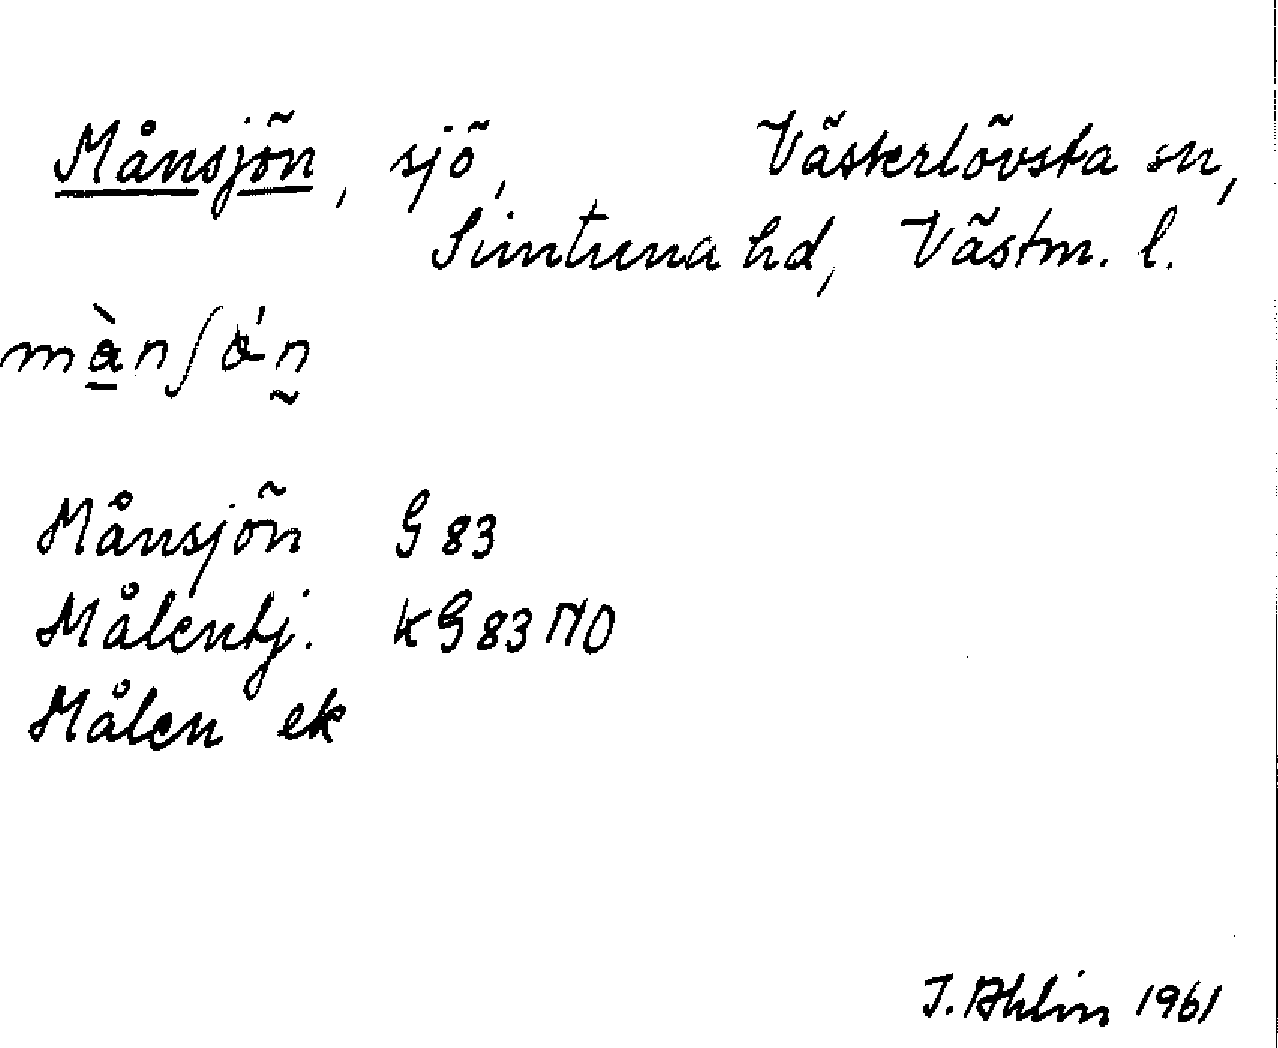 Månsjön, sjö, Västerlövsta sn,
Simtuna hd, Västm. l.
Månsjön G 83
Målentj. kG 83 NO
Målen ek
I. Ahlin 1961